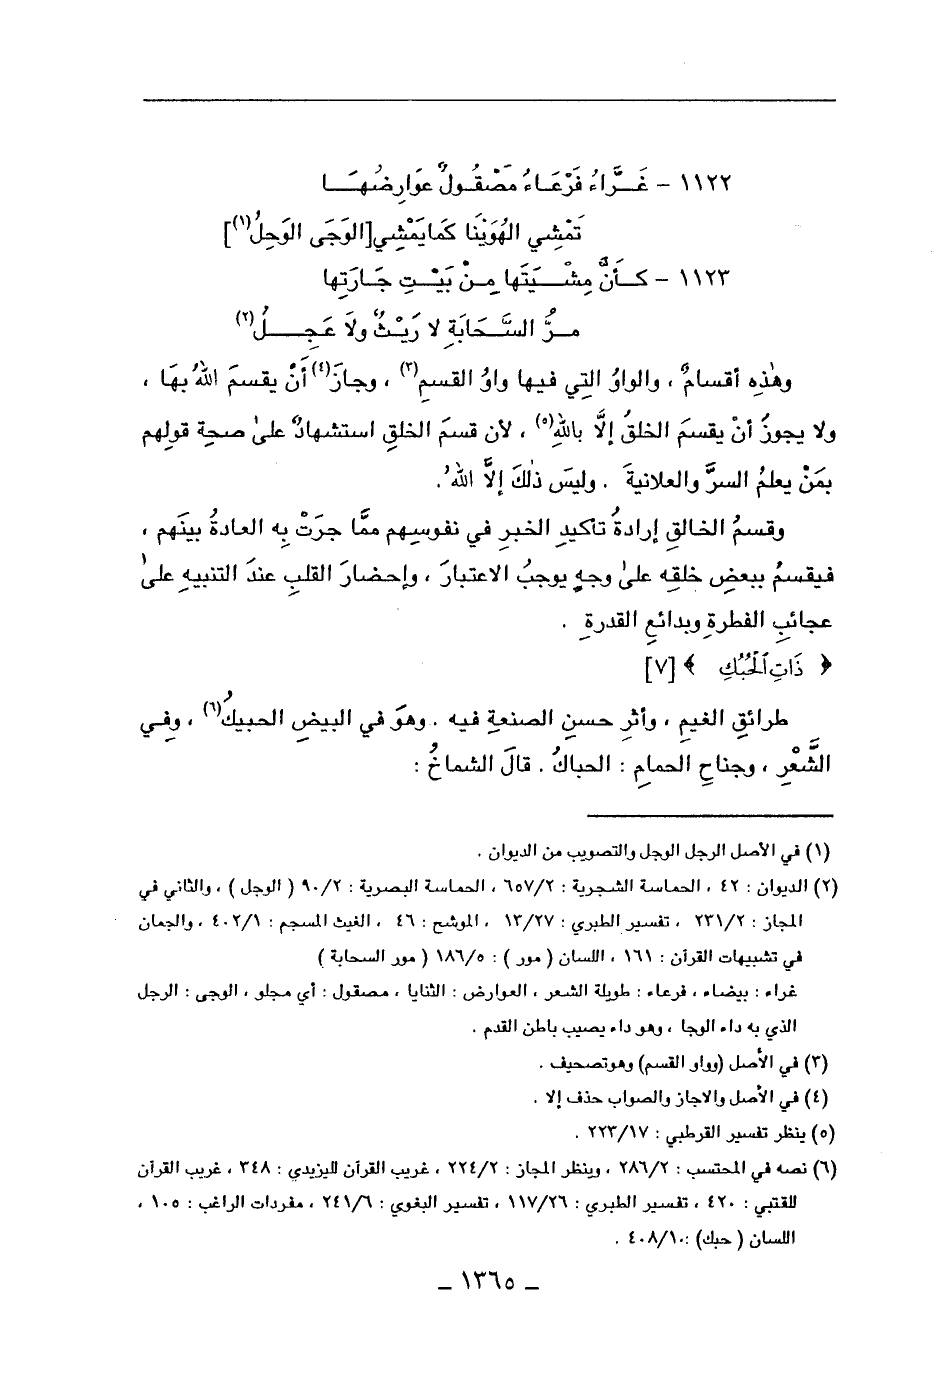 ١١٢٢ – غَـرَّاءُ فَرْعَـاءُ مَصْقُـولٌ عَوَارِضُهَـا
تَمْشِي الهُوَيْنَا كَمَا يَمْشِي [الوَجَى الوَحِلُ(١)]
١١٢٣ – كـأنَّ مِشْـيَتَها مِـنْ بَيْـتِ جَـارَتِها
مـرُّ السَّحَابَةِ لا رَيْثٌ ولَا عَجِـلُ(٢)
وهٰذِه أقسامٌ ، والواوُ التِي فيها واوُ القسمِ(٣) ، وجازَ(٤) أَنْ يقسمَ اللهُ بهَا ،
ولا يجوزُ أنْ يقسمَ الخلقُ إلَّا باللهِ(٥) ، لأن قسمَ الخلقِ استشهادٌ علىٰ صحةِ قولهِم
بمَنْ يعلمُ السرَّ والعلانيةَ . وليسَ ذٰلكَ إلَّا اللهُ .
وقسمُ الخالقِ إرادةُ تأكيدِ الخبرِ في نفوسِهم ممَّا جرَتْ بِه العادةُ بينَهم ،
فيقسمُ ببعضِ خلقِه علىٰ وجهٍ يوجبُ الاعتبارَ ، وإحضارَ القلبِ عندَ التنبيهِ علىٰ
عجائبِ الفطرةِ وبدائعِ القدرةِ .
﴿ ذَاتِ ٱلْحُبُكِ ﴾ [٧]
طرائقِ الغيمِ ، وأثرِ حسنِ الصنعةِ فيه . وهوَ في البيضِ الحبيكُ(٦) ، وفِي
الشَّعْرِ ، وجناحِ الحمامِ : الحباكُ . قالَ الشماخُ :
(١) في الأصل الرجل الوجل والتصويب من الديوان .
(٢) الديوان : ٤٢ ، الحماسة الشجرية : ٦٥٧/٢ ، الحماسة البصرية : ٩٠/٢ ( الوجل ) ، والثاني في
المجاز : ٢٣١/٢ ، تفسير الطبري : ١٣/٢٧ ، الموشح : ٤٦ ، الغيث المسجم : ٤٠٢/١ ، والجمان
في تشبيهات القرآن : ١٦١ ، اللسان ( مور ) : ١٨٦/٥ ( مور السحابة )
غراء : بيضاء ، فرعاء : طويلة الشعر ، العوارض : الثنايا ، مصقول : أي مجلو ، الوجى : الرجل
الذي به داء الوجا ، وهو داء يصيب باطن القدم .
(٣) في الأصل (وواو القسم) وهو تصحيف .
(٤) في الأصل والاجاز والصواب حذف إلا .
(٥) ينظر تفسير القرطبي : ٢٢٣/١٧ .
(٦) نصه في المحتسب : ٢٨٦/٢ ، وينظر المجاز : ٢٢٤/٢ ، غريب القرآن لليزيدي : ٣٤٨ ، غريب القرآن
للقتبي : ٤٢٠ ، تفسير الطبري : ١١٧/٢٦ ، تفسير البغوي : ٢٤١/٦ ، مفردات الراغب : ١٠٥ ،
اللسان ( حبك) : ٤٠٨/١٠ .
– ١٣٦٥ –